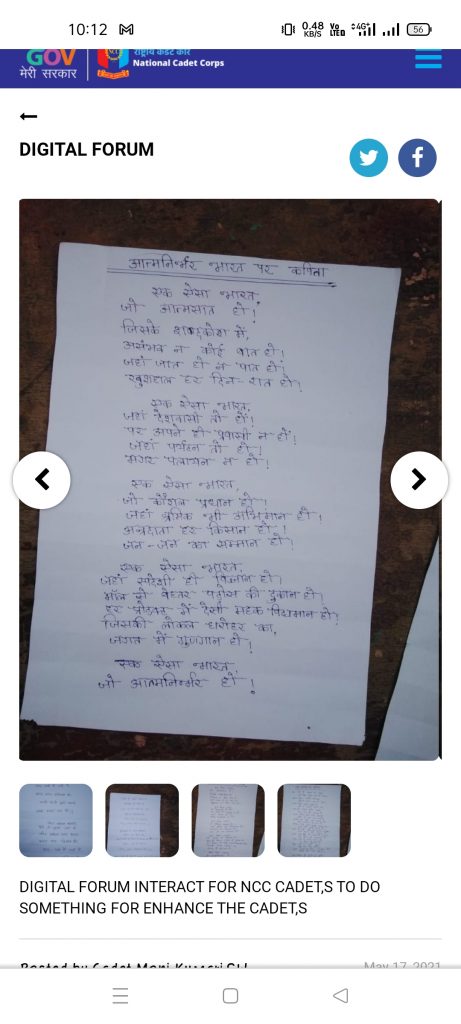 10:12
0.48
KB/S
Vo
LTE
4G
56
GOV
मेरी सरकार
राष्ट्रीय कैडेट कोर
National Cadet Corps
DIGITAL FORUM
आत्मनिर्भर भारत पर कविता
एक ऐसा भारत,
जो आत्मसात हो!
जिसके शब्दकोश में,
असंभव न कोई बात हो!
जहां जात हो न पात हो!
खुशहाल हर दिन-रात हो!
एक ऐसा भारत,
जहां देशवासी तो हो!
पर अपने ही प्रवासी न हों!
जहां पर्यटन तो हो!
मगर पलायन न हो!
एक ऐसा भारत,
जो कौशल प्रधान हो!
जहां श्रमिक भी अभिमान हो!
अन्नदाता हर किसान हो!
जन-जन का सम्मान हो!
एक ऐसा भारत,
जहां स्वदेशी ही विज्ञान हो!
मॉल से बेहतर पड़ोस की दुकान हो!
हर प्रोडक्ट में देसी महक विद्यमान हो!
जिसकी लोकल धरोहर का,
जगत में गुणगान हो!
एक ऐसा भारत,
जो आत्मनिर्भर हो!
DIGITAL FORUM INTERACT FOR NCC CADET,S TO DO
SOMETHING FOR ENHANCE THE CADET,S
Posted by Cadet Mani Kumari
May 17, 2021